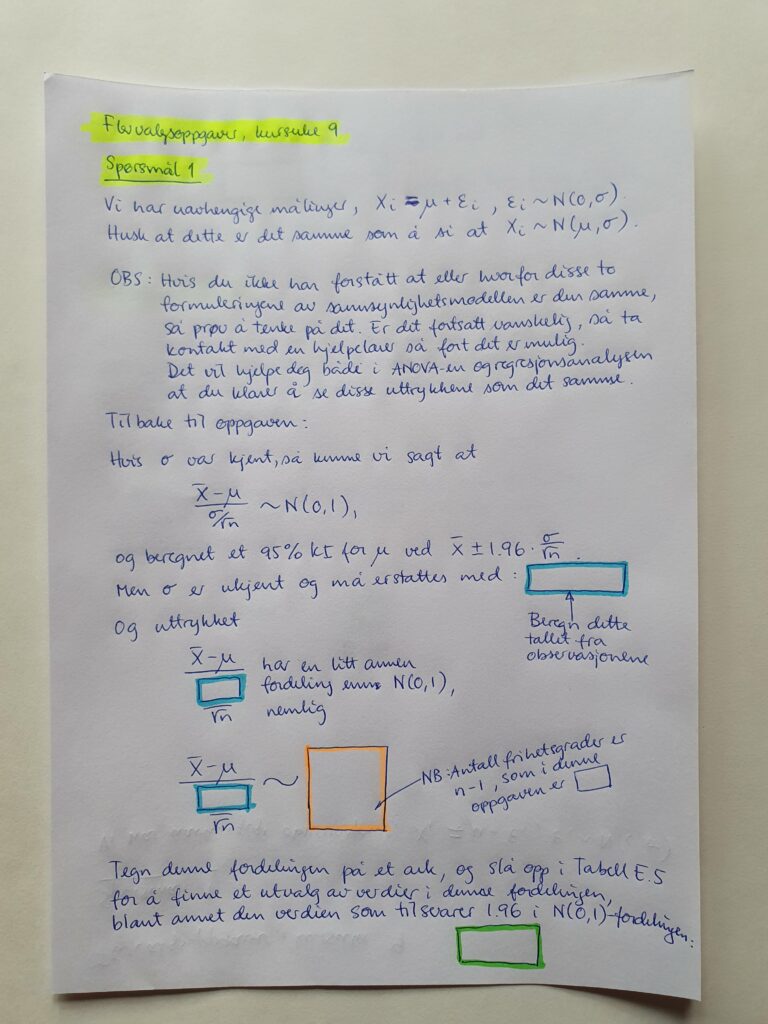 Flervalgsoppgaver, kursuke 9
Spørsmål 1
Vi har uavhengige målinger, Xi = μ + εi, εi ~ N(0,σ).
Husk at dette er det samme som å si at Xi ~ N(μ,σ).
OBS: Hvis du ikke har forstått at eller hvorfor disse to
formuleringene av sannsynlighetsmodellen er den samme,
så prøv å tenke på det. Er det fortsatt vanskelig, så ta
kontakt med en hjelpelærer så fort det er mulig.
Det vil hjelpe deg både i ANOVA-en og regresjonsanalysen
at du klarer å se disse uttrykkene som det samme.
Tilbake til oppgaven:
Hvis σ var kjent, så kunne vi sagt at
X̄ - μ
σ/√n ~ N(0,1),
og beregnet et 95% KI for μ ved X̄ ± 1.96 · σ/√n.
Men σ er ukjent og må erstattes med:
Beregn dette
tallet fra
observasjonene
Og uttrykket
X̄ - μ
√n
har en litt annen
fordeling enn N(0,1),
nemlig
X̄ - μ
√n
~
NB: Antall frihetsgrader er
n-1, som i denne
oppgaven er
Tegn denne fordelingen på et ark, og slå opp i Tabell E.5
for å finne et utvalg av verdier i denne fordelingen,
blant annet den verdien som tilsvarer 1.96 i N(0,1)-fordelingen: